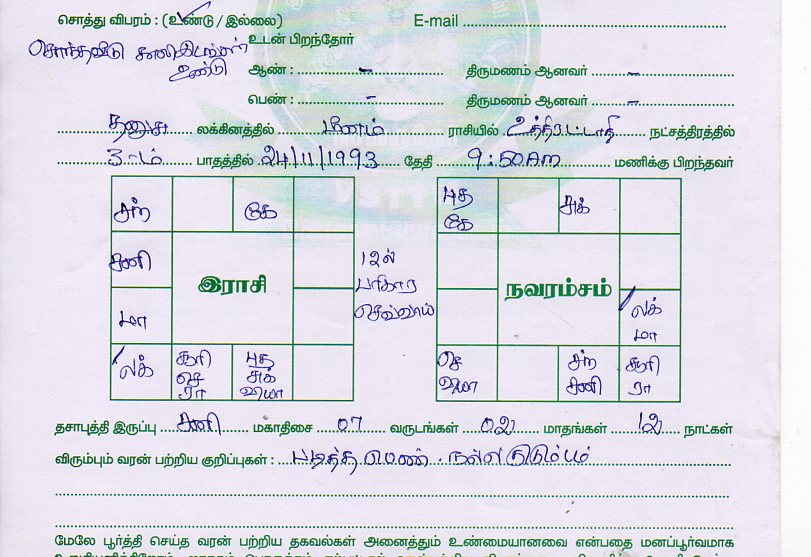 சொத்து விபரம் : (உண்டு / இல்லை) E-mail
சொந்தவீடு காலியிடங்கள்
உண்டு
உடன் பிறந்தோர்
ஆண் : – திருமணம் ஆனவர் –
பெண் : – திருமணம் ஆனவர் –
தனுசு லக்கினத்தில் மீனம் ராசியில் உத்திரட்டாதி நட்சத்திரத்தில்
3-ம் பாதத்தில் 24/11/1993 தேதி 9:50Am மணிக்கு பிறந்தவர்
சந் கே
சனி
மா
இராசி
லக்
சூரி
செ
ரா
புத
சுக்
வியா
12ல்
பரிகார
செவ்வாய்
புத
கே
சுக்
நவரம்சம்
லக்
மா
செ
வியா
சந்
சனி
சூரி
ரா
தசாபுத்தி இருப்பு சனி மகாதிசை 07 வருடங்கள் 02 மாதங்கள் 12 நாட்கள்
விரும்பும் வரன் பற்றிய குறிப்புகள் : படித்த பெண். நல்ல குடும்பம்
மேலே பூர்த்தி செய்த வரன் பற்றிய தகவல்கள் அனைத்தும் உண்மையானவை என்பதை மனப்பூர்வமாக